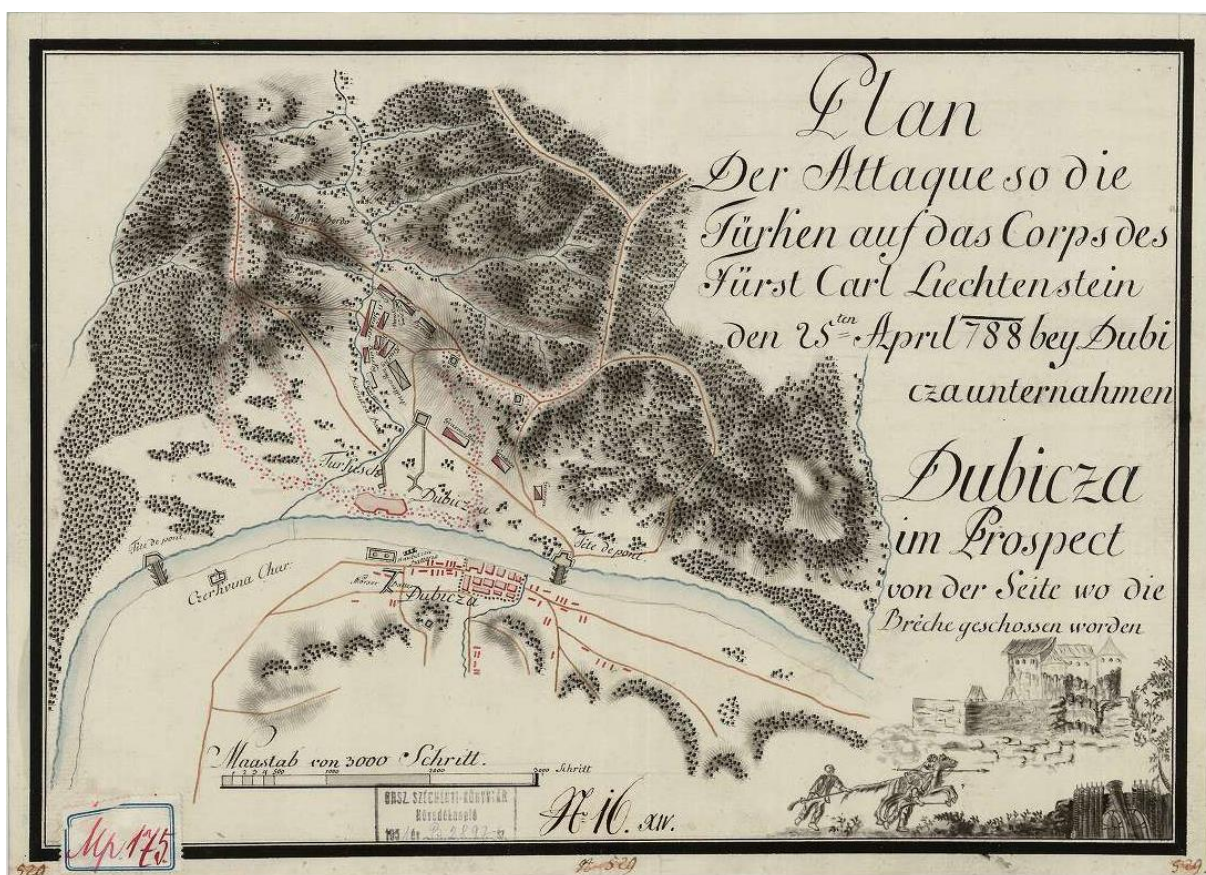 Plan
Der Attaque so die
Türken auf das Corps des
Fürst Carl Liechtenstein
den 25ten April 788 bey Dubi
cza unternahmen
Dubicza
im Prospect
von der Seite wo die
Brêche geschossen worden
Türkisch
Dubicza
Tête de pont.
Tête de pont.
Czerkvina Char.
Dubicza
Maastab von 3000 Schritt.
1000
2000
3000 Schritt
ORSZ. SZÉCHÉNYI-KÖNYVTÁR
Növedéknapló
No 16. XIV.
Mp. 175.
529
529
529.